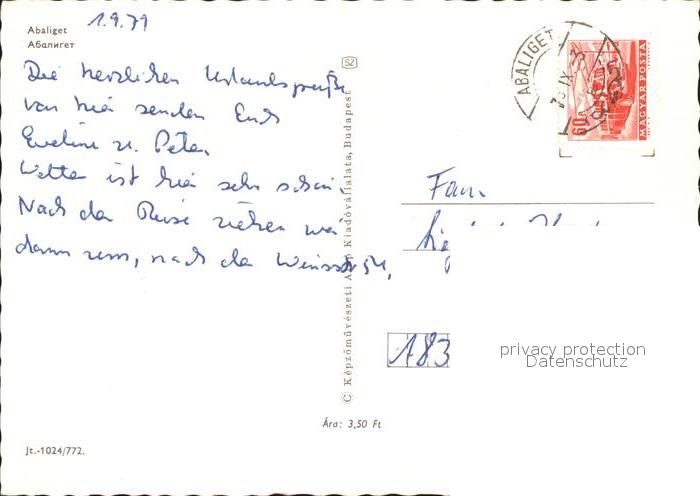 Abaliget
Абалигет
1.9.79
Die herzlichen Urlaubsgrüße
von hier senden Euch
Eveline u. Peter.
Wetter ist hier sehr schön
Nach der Reise ziehen wir
dann um, nach der
SZ
© Képzőművészeti Alap Kiadóvállalata, Budapest
ABALIGET
60 f
MAGYAR POSTA
Fam.
183
privacy protection
Datenschutz
Ára: 3,50 Ft
Jt.-1024/772.